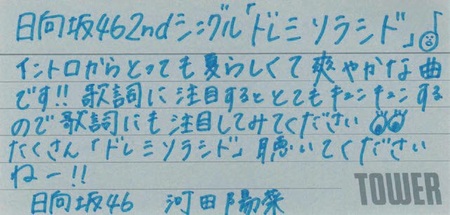 日向坂46 2ndシングル「ドレミソラシド」♪
イントロからとっても夏らしくて爽やかな曲
です!! 歌詞に注目するととてもキュンキュンする
ので歌詞にも注目してみてください
たくさん「ドレミソラシド」聴いてください
ねー!!
日向坂46 河田陽菜
TOWER